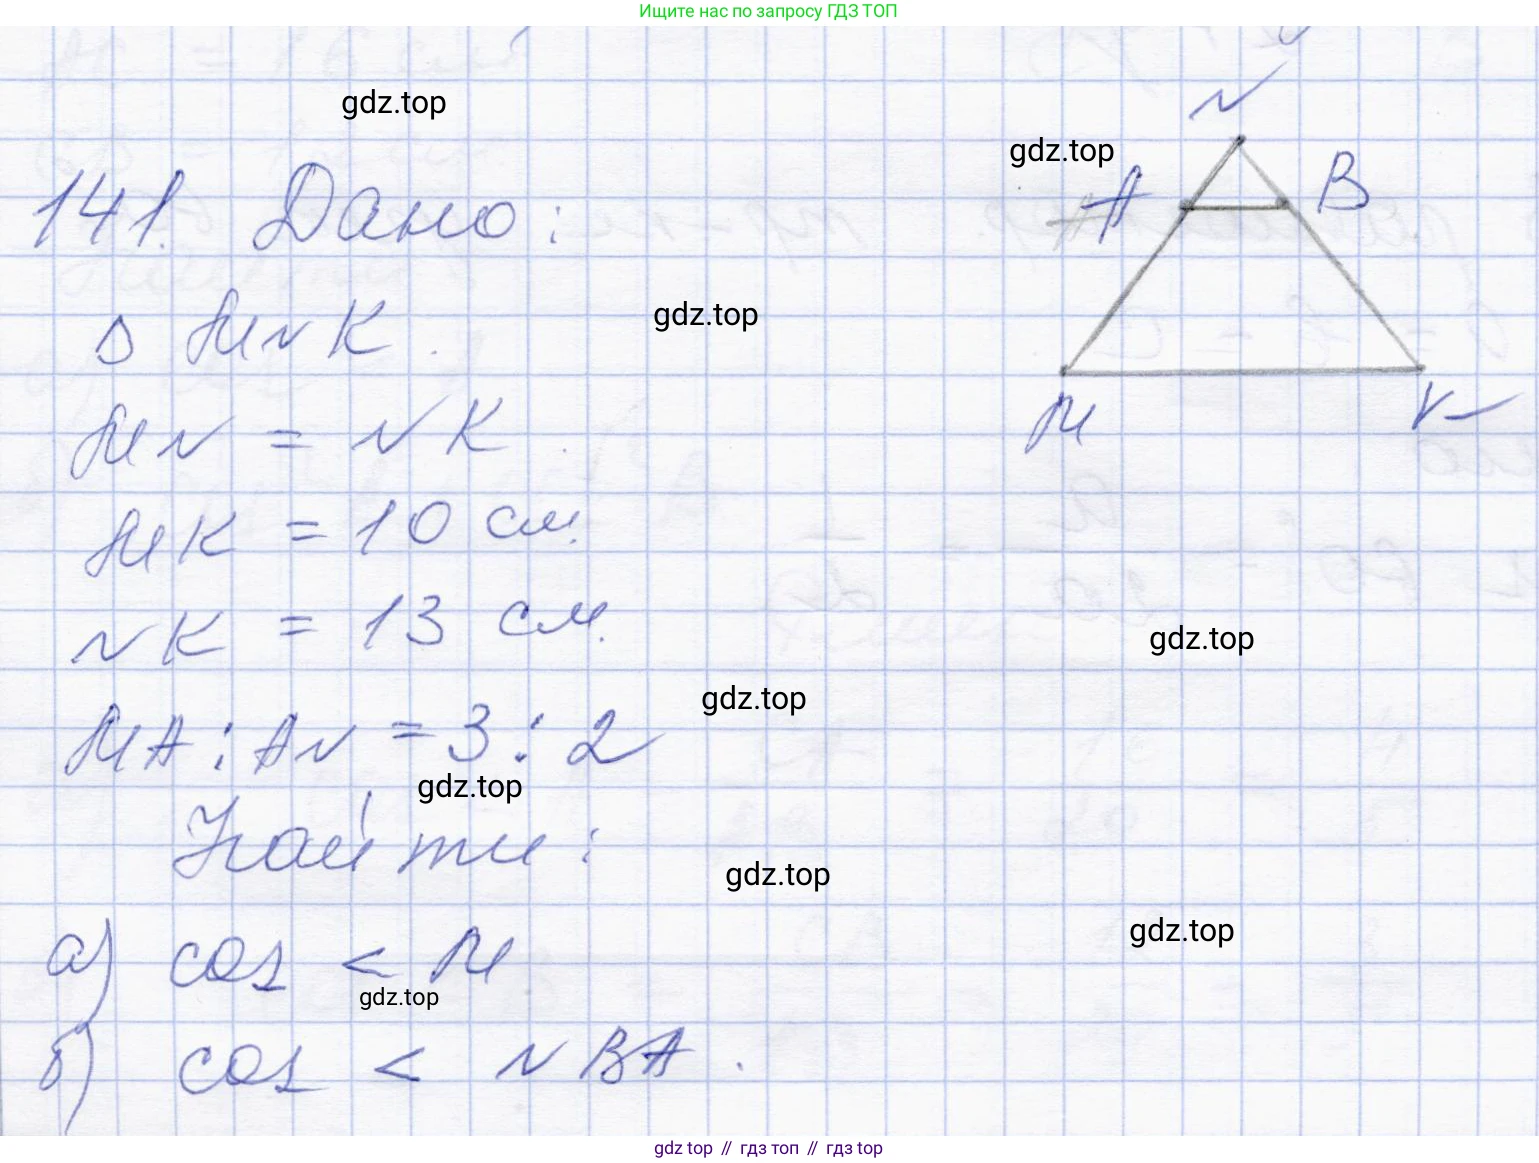 Ищите нас по запросу ГДЗ ТОП
gdz.top
N
gdz.top
A B
141. Дано:
gdz.top
Δ MNK.
M K
MN = NK
MK = 10 см.
NK = 13 см.
gdz.top
gdz.top
MA : AN = 3 : 2
gdz.top
Найти:
gdz.top
gdz.top
а) cos < M
gdz.top
б) cos < NBA.
gdz top // гдз топ // гдз top